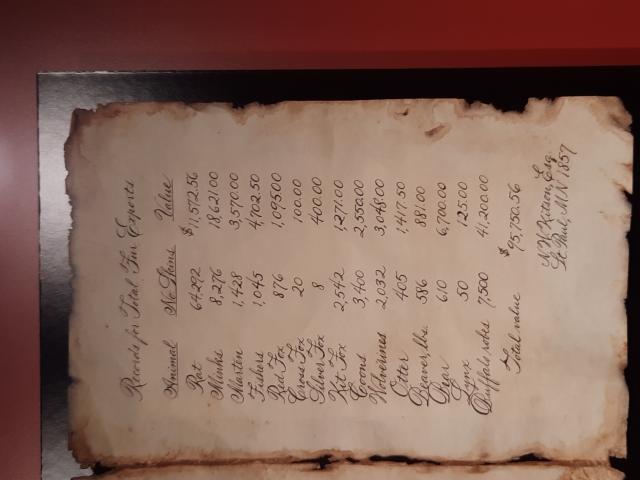 Records for Total Fur Exports
Animal No Skins Value
Rat 64,292 $11,572.56
Minks 8,276 18621.00
Marten 1,428 3,570.00
Fishers 1,045 4,702.50
Red Fox 876 1,095.00
Cross Fox 20 100.00
Silver Fox 8 400.00
Kit Fox 2,542 1,271.00
Coons 3,400 2,550.00
Wolverines 2,032 3,048.00
Otter 405 1,417.50
Beaver, lbs. 586 881.00
Bear 610 6,700.00
Lynx 50 125.00
Buffalo robes 7,500 41,200.00
Total value $95,750.56
N.W. Kitson, Esq.
St. Paul, MN 1857